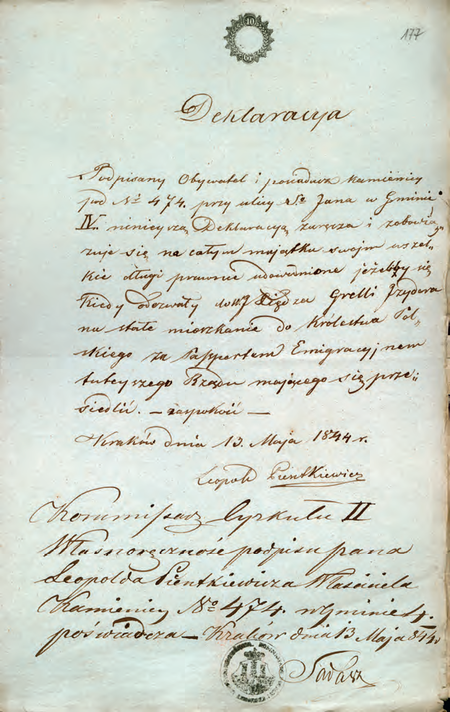 177
Deklaracyja
Podpisany Obywatel i posiadacz kamienicy
pod No 474. przy ulicy Sgo Jana w Gminie
IV. niniejszą Deklaracyą zaręcza i zobowią-
zuje się na całym majątku swoim wszel-
kie długi prawnie udowodnione jeżeliby się
kiedy odezwały do Xiędza Grelli Izydora
na stałe mieszkanie do Królestwa Pol-
skiego za Passportem Emigracyjnem
tutejszego Rządu mającego się prze-
siedlić. — zaspokoić —
Kraków dnia 13. Maja 1844 r.
Leopold Pientkiewicz
Kommissarz Cyrkułu II
Własnoręczność podpisu pana
Leopolda Pientkiewicza Właściciela
Kamienicy No 474. w Gminie
poświadcza — Kraków dnia 13 Maja 844